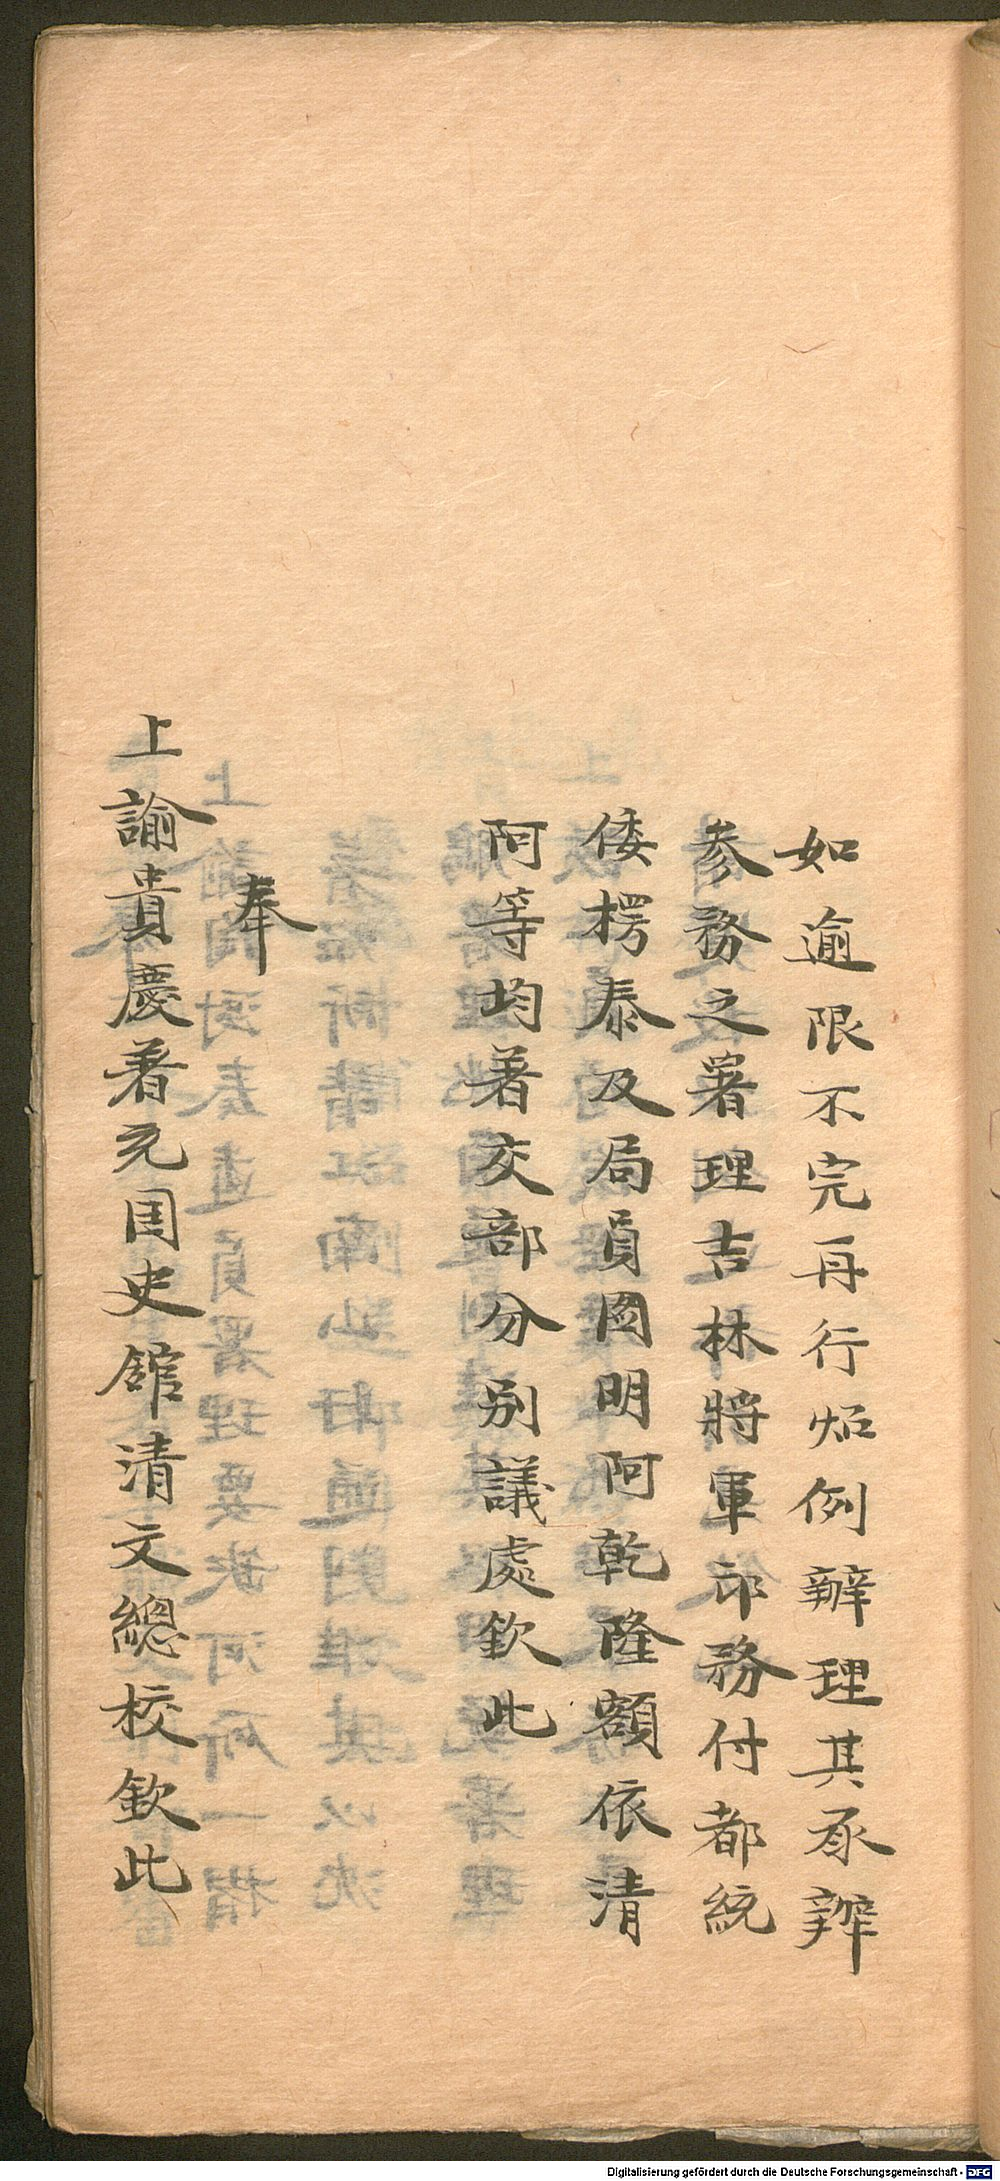 如逾限不完再行炤例辦理其承辦
參務之署理吉林將軍印務付都統
倭楞泰及局員圖明阿乾隆額依清
阿等均著交部分別議處欽此
奉
上諭貴慶著充国史館清文總校欽此
Digitalisierung gefördert durch die Deutsche Forschungsgemeinschaft - DFG